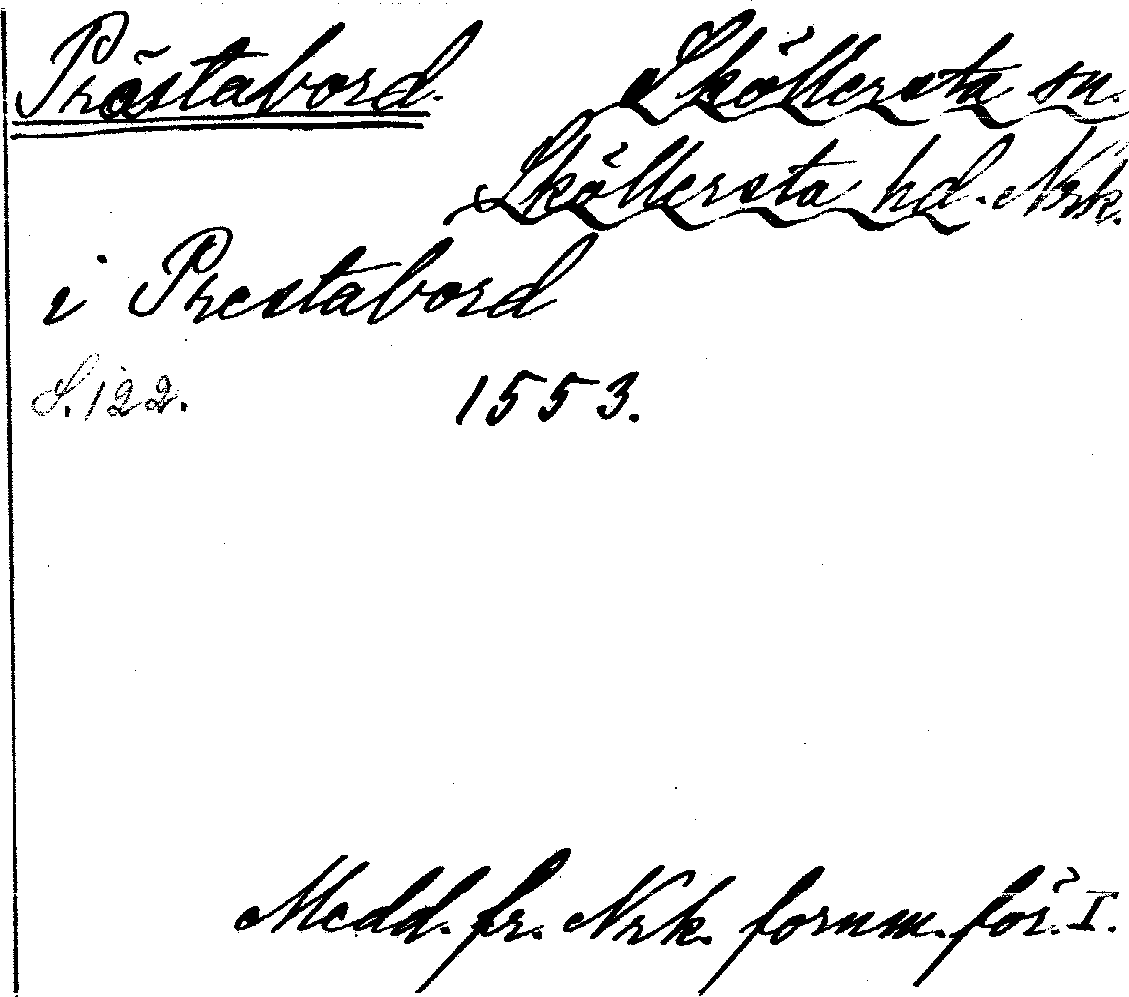 Prästabord. Sköllersta sn.
Sköllersta hd. Nrk.
i Prestabord
S. 122. 1553.
Medd. fr. Nrk. fornm. för. I.